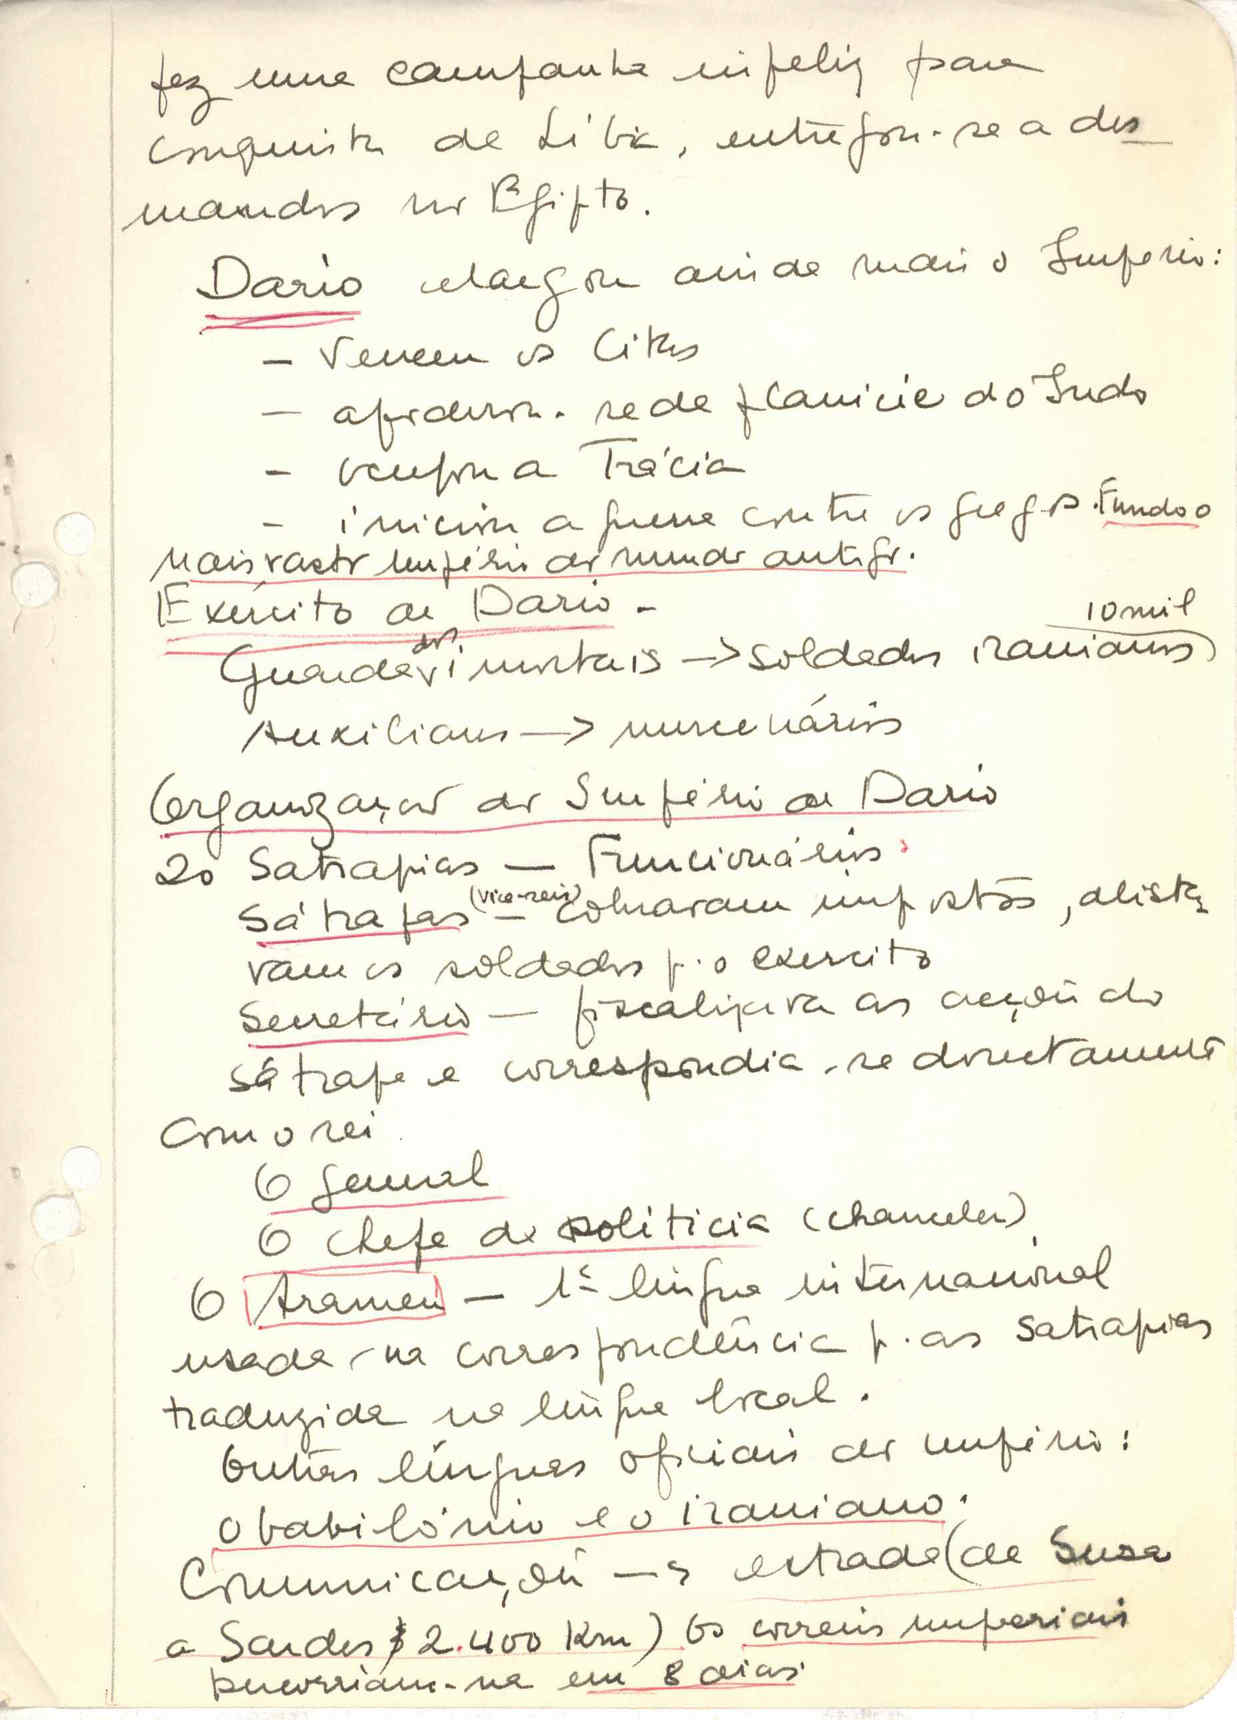 fez uma campanha infeliz para
conquista da Líbia, entregou-se a des
mandos no Egipto.
Dario alargou ainda mais o Império:
- Venceu os Citas
- apoderou-se da planície do Indo
- ocupou a Trácia
- iniciou a guerra contra os gregos. Fundou o
mais vasto império do mundo antigo.
Exército de Dario -
10 mil
Guarda dos imortais -> soldados iranianos
Auxiliares -> mercenários
Organização do Império de Dario
20 Satrapias - Funcionários
Sátrapas (vice-reis) - cobravam impostos, alista
vam os soldados p. o exercito
Secretário - fiscalizava as acções do
sátrapa e correspondia-se directamente
com o rei
O general
O chefe da politicia (chanceler)
O Arameu - 1ª língua internacional
usada na correspondência p. as Satrapias
traduzida na língua local.
Outras línguas oficiais do império:
o babilónio e o iraniano.
Comunicações -> estrada (de Susa
a Sardes 2.400 Km) Os correios imperiais
percorriam-na em 8 dias